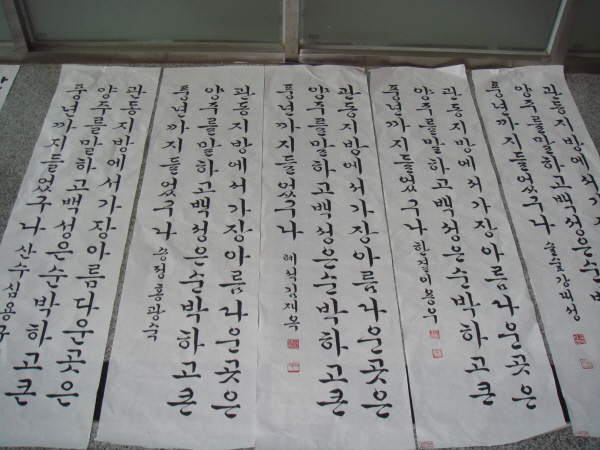 관동지방에서가
양주를말하고백성은순
풍년까지들었구나 솔숲강대성
관동지방에서가장아름다운곳은
양주를말하고백성은순박하고큰
풍년까지들었구나 이종우
관동지방에서가장아름다운곳은
양주를말하고백성은순박하고큰
풍년까지들었구나
관동지방에서가장아름다운곳은
양주를말하고백성은순박하고큰
풍년까지들었구나 송정홍광숙
관동지방에서가장아름다운곳은
양주를말하고백성은순박하고큰
풍년까지들었구나 산수심용구